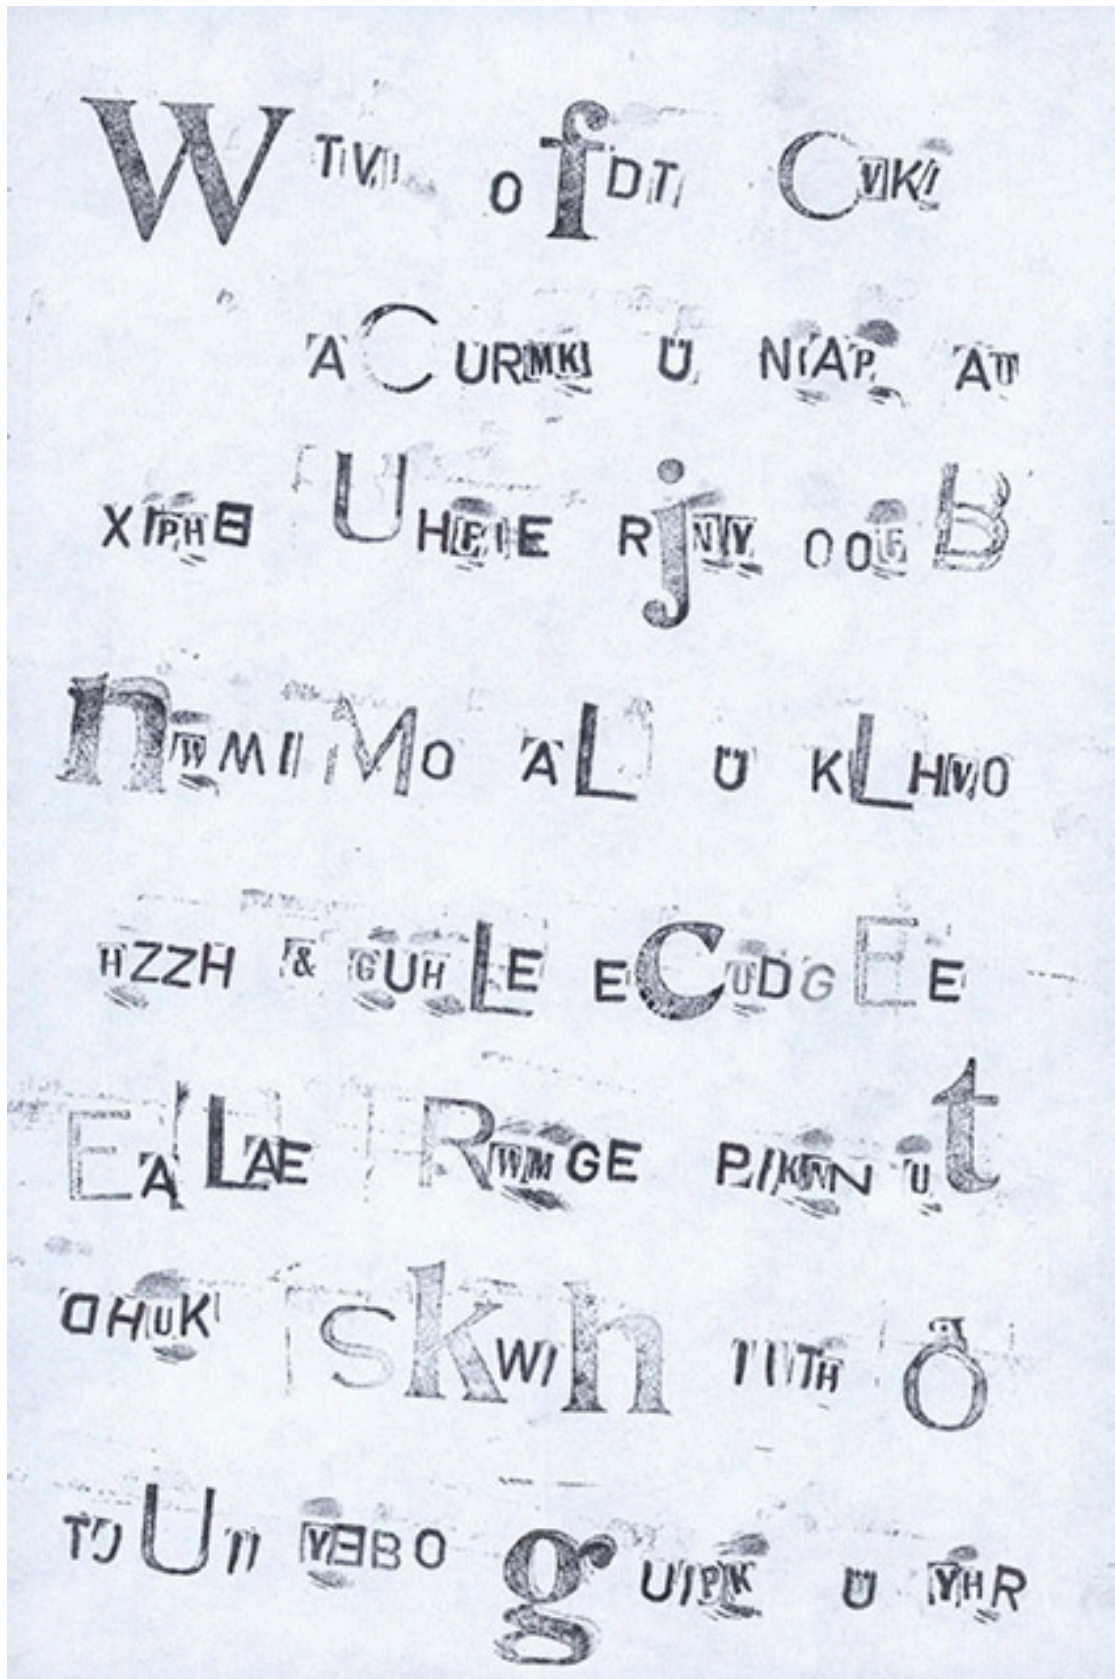 W TVI OfDTI CVKI
A CURMKI U NIAP AU
XIPHB UHPIE RjNY OOGB
nWMIIMO AL U KLHVO
HZZH & GUHLE ECUDGEE
EALAE RWMGE PIKNN Ut
OHUK skWIh IIITH O
TJUTI YEBO gUIPK U YHR